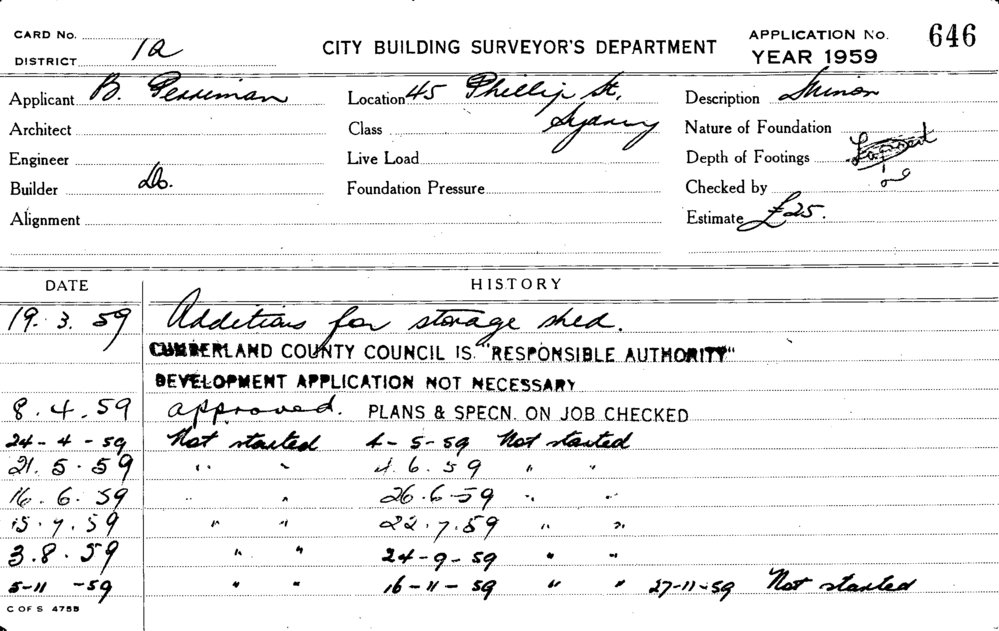 CARD No. APPLICATION No. 646
DISTRICT 1a CITY BUILDING SURVEYOR'S DEPARTMENT YEAR 1959
Applicant B. Perriman Location 45 Phillip St. Description Minor
Architect Class Sydney Nature of Foundation
Engineer Live Load Depth of Footings
Builder Do. Foundation Pressure Checked by
Alignment Estimate £25.
DATE HISTORY
19. 3. 59 Additions for storage shed.
CUMBERLAND COUNTY COUNCIL IS "RESPONSIBLE AUTHORITY"
DEVELOPMENT APPLICATION NOT NECESSARY
8. 4. 59 approved. PLANS & SPECN. ON JOB CHECKED
24-4-59 Not started 4-5-59 Not started
21. 5. 59 " " 4. 6. 59 " "
16. 6. 59 " " 26-6-59 " "
15. 7. 59 " " 22. 7. 59 " "
3. 8. 59 " " 24-9-59 " "
5-11-59 " " 16-11-59 " " 27-11-59 Not started
C OF S 4755